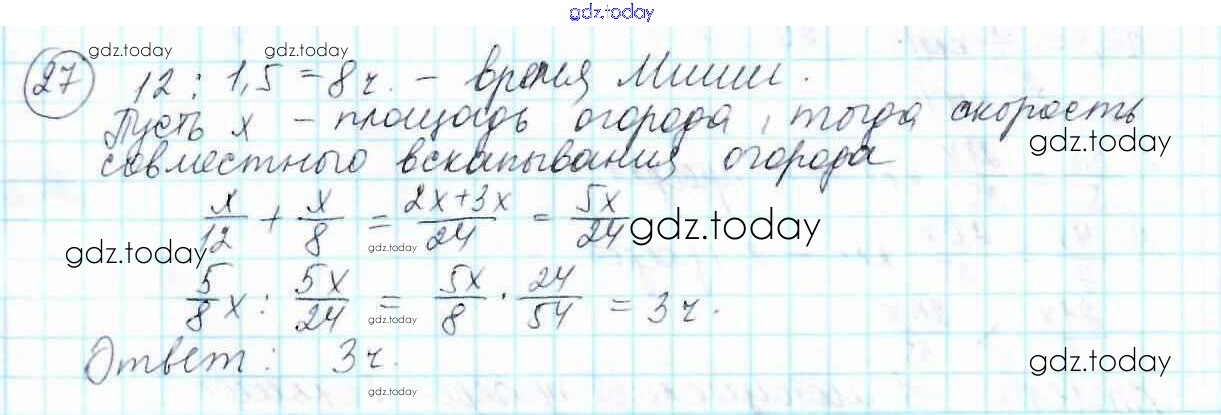 gdz.today
gdz.today gdz.today
27 12 : 1,5 = 8 ч. – время Миши.
Пусть x – площадь огорода, тогда скорость
gdz.today
совместного вскапывания огорода
x/12 + x/8 = 2x+3x/24 = 5x/24
gdz.today gdz.today gdz.today
5/8 x : 5x/24 = 5x/8 · 24/54 = 3 ч.
gdz.today
Ответ: 3 ч.
gdz.today
gdz.today